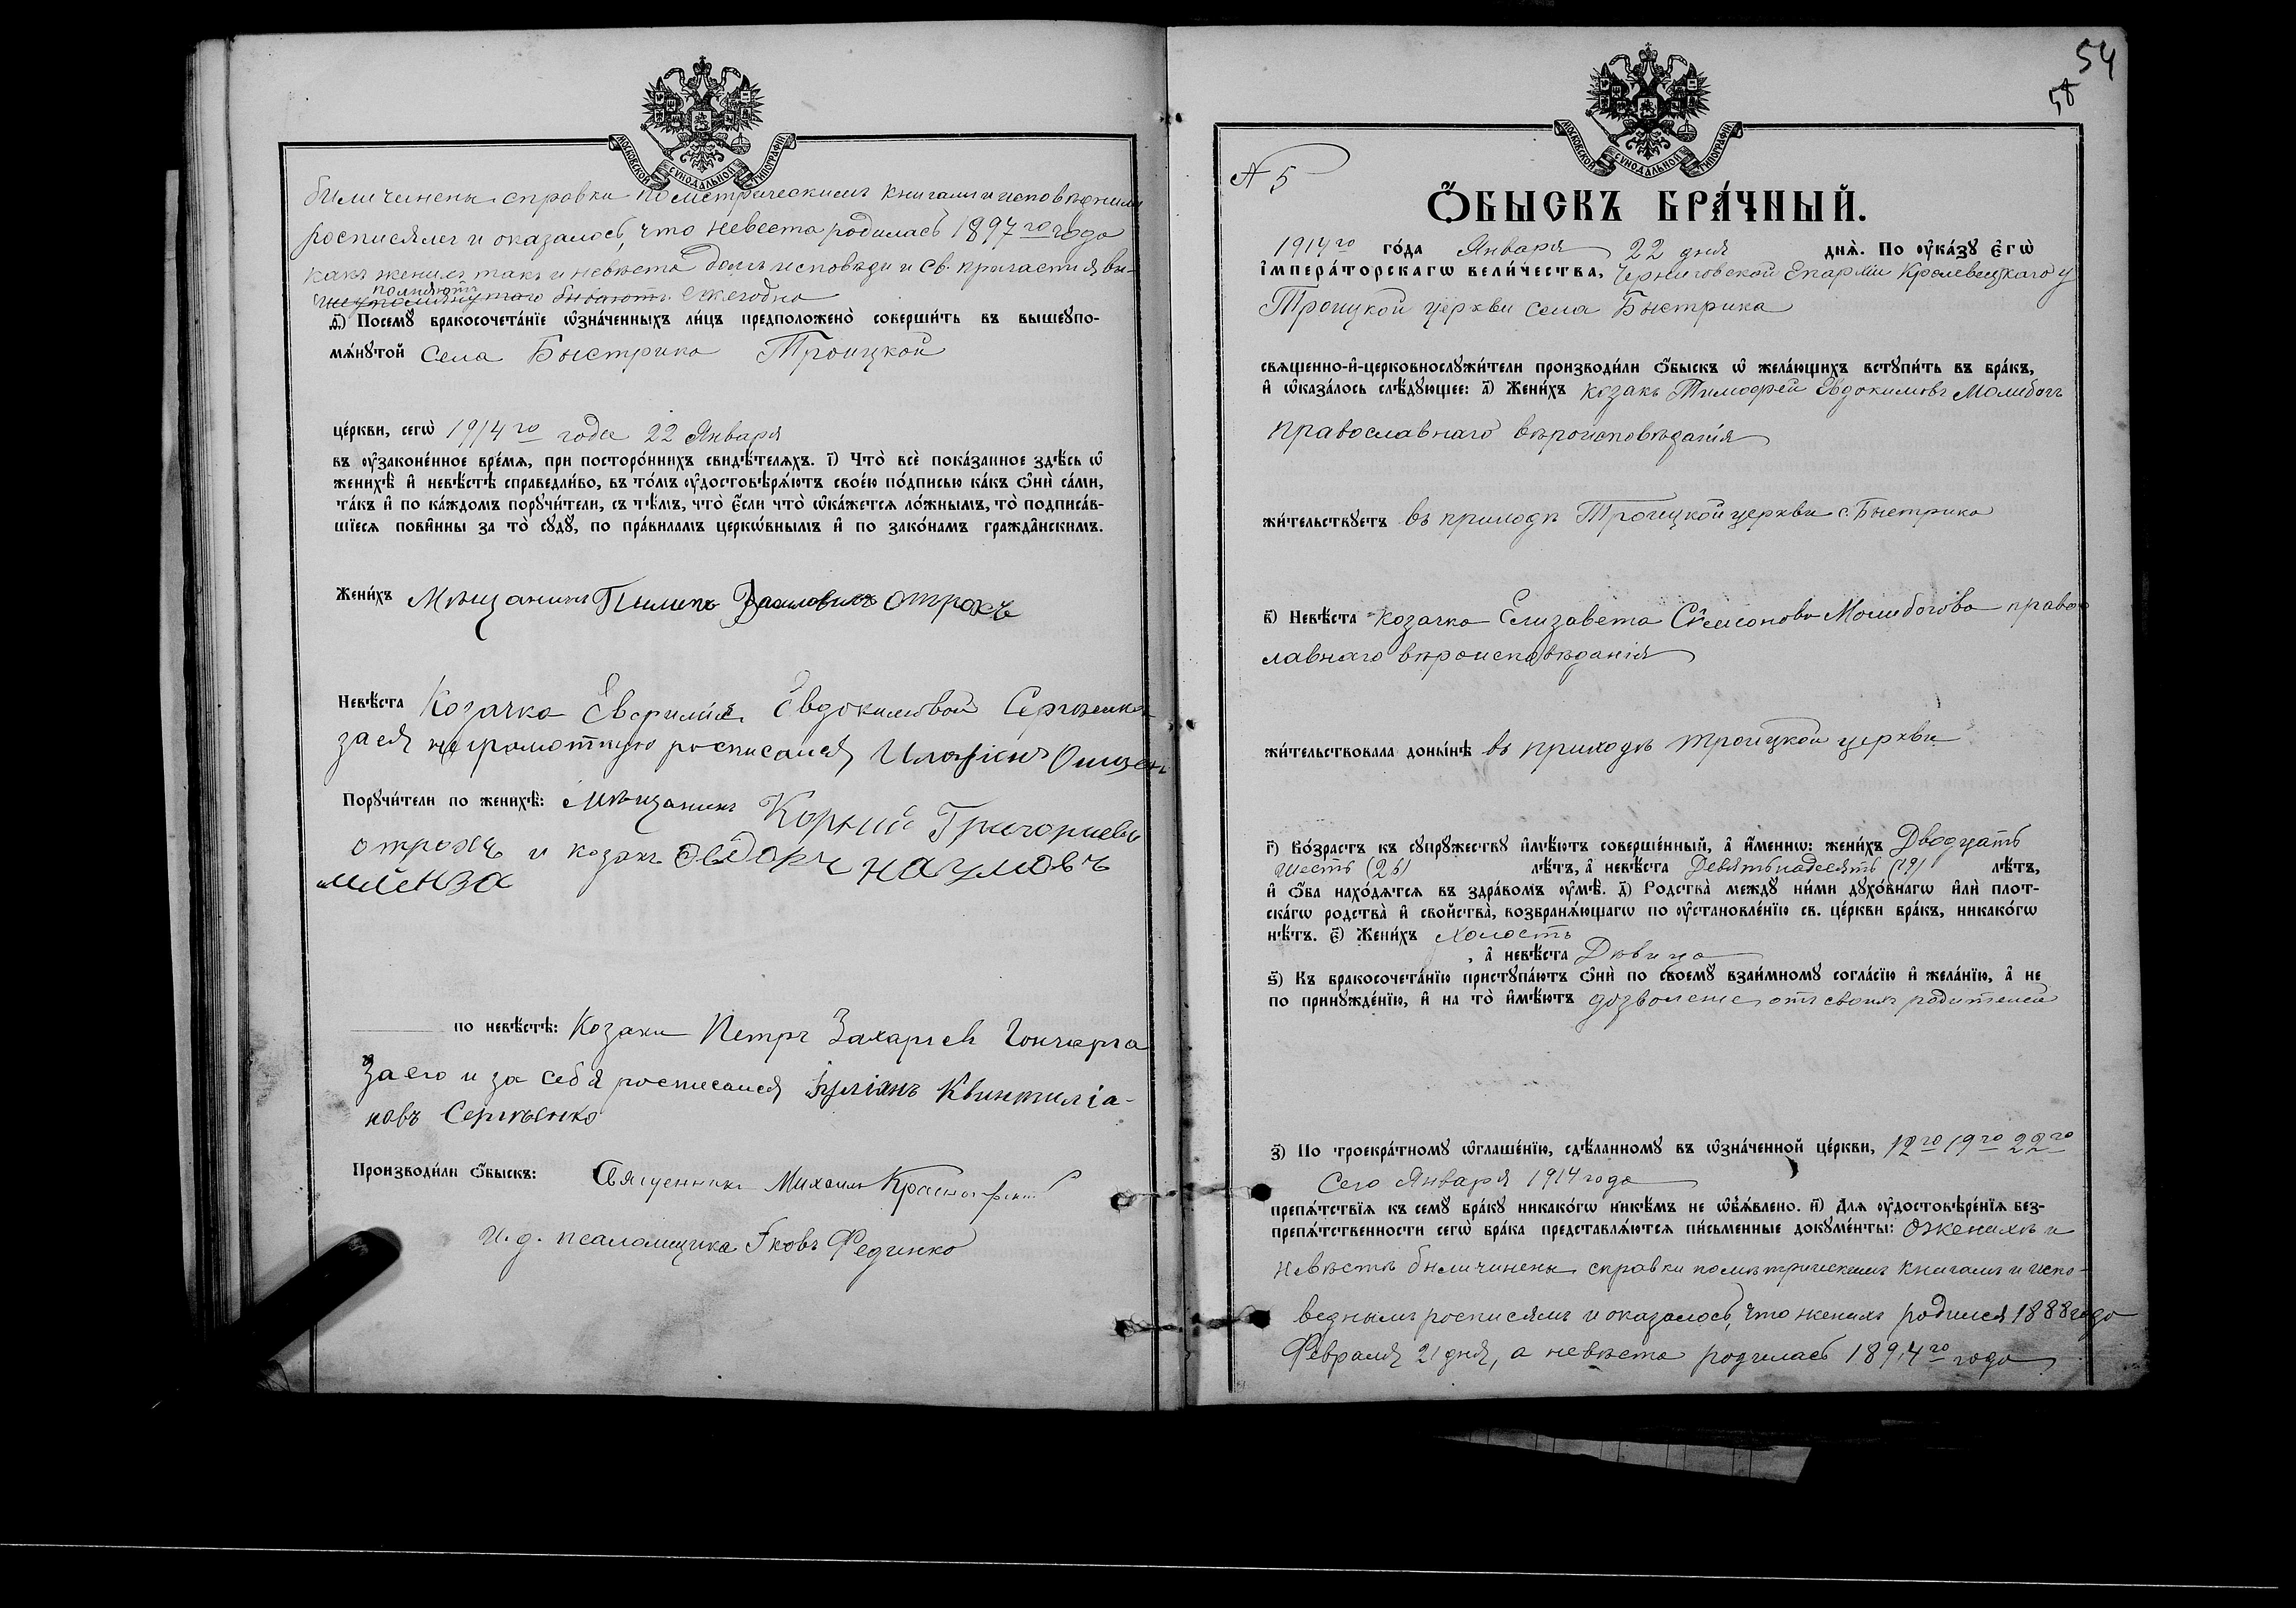 МОСКОВСКОЙ СѴНОДАЛЬНОЙ ТИПОГРАФІИ
били чинены справки по метрическимъ книгамъ и исповѣднымъ
росписямъ и оказалось, что невеста родилась 1897го года
какъ женихъ такъ и невѣста долгъ исповѣди и св. причастия вы-
полняютъ
бываютъ ежегодно
ѳ҃) Посему бракосочета́нїе ѡзна́ченныхъ ли́цъ предположено̀ соверши́ть въ вышеупо-
мѧ́нутой села Быстрика Троицкой
це́ркви, сегѡ̀ 1914го года 22 Января
въ оу҆законе́нное вре́мѧ, при посторо́ннихъ свидѣ́телѧхъ. і҃) Что̀ всѐ пока́занное здѣ́сь ѡ҆
женихѣ̀ и҆ невѣ́стѣ справедли́во, въ то́мъ оу҆достовѣрѧ́ютъ свое́ю по́дписью ка́къ ѻ҆нѝ са́ми,
та́къ и҆ по ка́ждомъ поручи́тели, съ тѣ́мъ, что̀ є҆́сли что̀ ѡ҆ка́жется ло́жнымъ, то̀ подписа́в-
шїеся пови́нны за то̀ суду̀, по пра́виламъ церкѡ́внымъ и҆ по зако́намъ гражда́нскимъ.
Жени́хъ Мѣщанинъ Пилипъ отрохъ
Невѣ́ста Козачка Евфимія Евдокимовой Сергѣенко
за ея неграмотную росписался
Поручи́тели по женихѣ̀: Мѣщанинъ Корній Григориевъ
отрохъ и козакъ Федоръ наумовъ
по невѣ́стѣ: Козаки Петръ Захаріев Гончаръ а
За его и за себя росписался Іуліанъ Квинтиліа-
новъ Сергѣенко
Производи́ли ѻ҆́быскъ: Священникъ Михаилъ
И. д. псаломщика Яковъ Фединко
54
МОСКОВСКОЙ СѴНОДАЛЬНОЙ ТИПОГРАФІИ
№ 5
Ѻ҆́БЫСКЪ БРА́ЧНЫЙ.
1914го го́да Января 22 дня днѧ̀. По оу҆ка́зу є҆гѡ̀
і҆мпера́торскагѡ вели́чества, Черниговской Епархіи Кролевецкаго у
Троицкой церкви села Быстрика
свѧщенно-и҆-церковнослужи́тели производи́ли ѻ҆́быскъ ѡ҆ жела́ющихъ вступи́ть въ бра́къ,
и҆ ѡ҆каза́лось слѣ́дующее: а҃) Жени́хъ козакъ Тимофей Евдокимовъ Молибогъ
православнаго вѣроисповѣданія
жи́тельствуетъ въ приходѣ Троицкой церкви с. Быстрика
в҃) Невѣ́ста козачка Елизавета Симонова Молибогова право-
славнаго вѣроисповѣданія
жи́тельствовала доны́нѣ въ приходѣ троицкой церкви
г҃) Во́зрастъ къ супру́жеству и҆мѣ́ютъ соверше́нный, а҆ и҆́меннѡ: жени́хъ Двадцать
шесть (26) лѣ́тъ, а҆ невѣ́ста Девятьнадесять (19) лѣ́тъ,
и҆ ѻ҆́ба нахо́дѧтся въ здра́вомъ оу҆мѣ̀. д҃) Родства̀ между ни́ми духо́внагѡ и҆лѝ плот-
ска́гѡ родства̀ и҆ сво́йства̀, возбранѧ́ющагѡ по оу҆становле́нїю св. це́ркви бра́къ, никако́гѡ
нѣ́тъ. є҃) Жени́хъ Холостъ
, а҆ невѣ́ста Дѣвица
ѕ҃) Къ бракосочета́нїю приступа́ютъ ѻ҆нѝ по своему̀ взаи́мному согла́сїю и҆ жела́нїю, а҆ не
по принужде́нїю, и҆ на то̀ и҆мѣ́ютъ дозволеніе отъ своихъ родителей
з҃) По троекра́тному ѡ҆глаше́нїю, сдѣ́ланному въ ѡзна́ченной це́ркви, 12го 19го 22го
Сего Января 1914 года
препѧ́тствїѧ къ сему̀ бра́ку никако́гѡ никѣ́мъ не ѡ҆б̾ѧ́влено. и҃) Для оу҆достовѣре́нїѧ без-
препѧ́тственности сегѡ̀ бра́ка представлѧ́ются пи́сьменные докуме́нты: О женихѣ и
невѣстѣ были чинены справки по метрическимъ книгамъ и испо-
веднымъ росписямъ и оказалось, что женихъ родился 1888 года
Февраля 21 дня, а невѣста родилась 1894го года